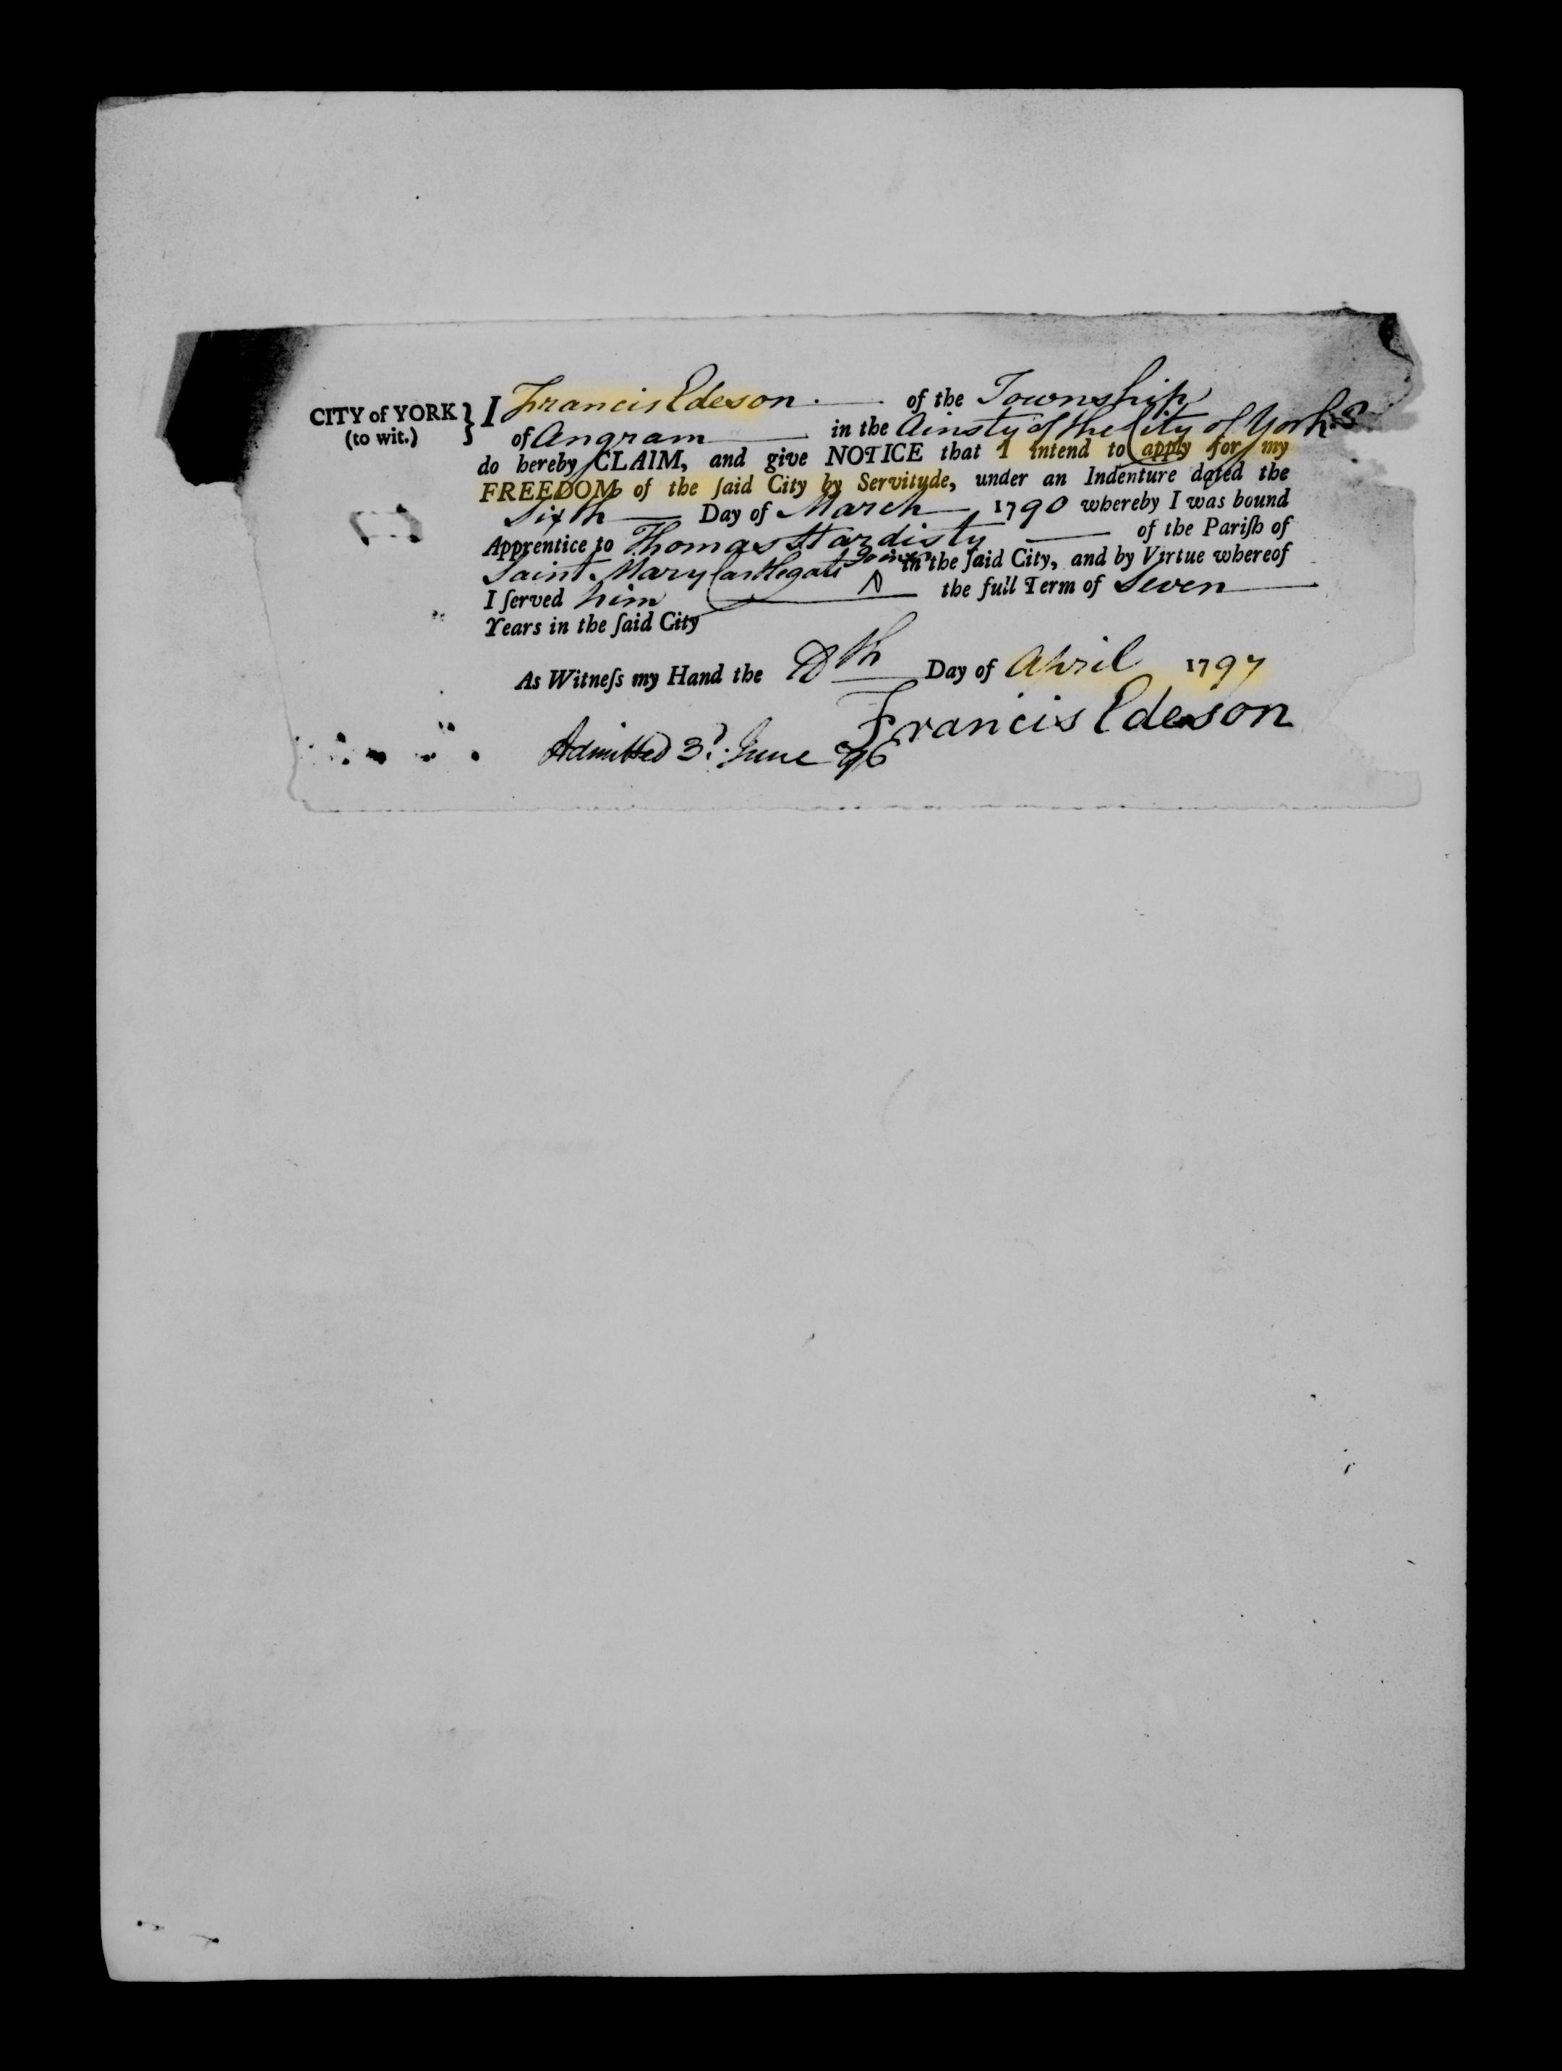 CITY of YORK } I Francis Edeson of the Township
(to wit.) of Angram in the Ainsty of the City of York
do hereby CLAIM, and give NOTICE that I intend to apply for my
FREEDOM of the ſaid City by Servitude, under an Indenture dated the
Sixth Day of March 1790 whereby I was bound
Apprentice to Thomas Hardisty of the Pariſh of
Saint Mary Castlegate Joiner in the ſaid City, and by Virtue whereof
I ſerved him the full Term of Seven
Years in the ſaid City
As Witneſs my Hand the Day of April 1797
Francis Edeson
Admitted 3d. June 96